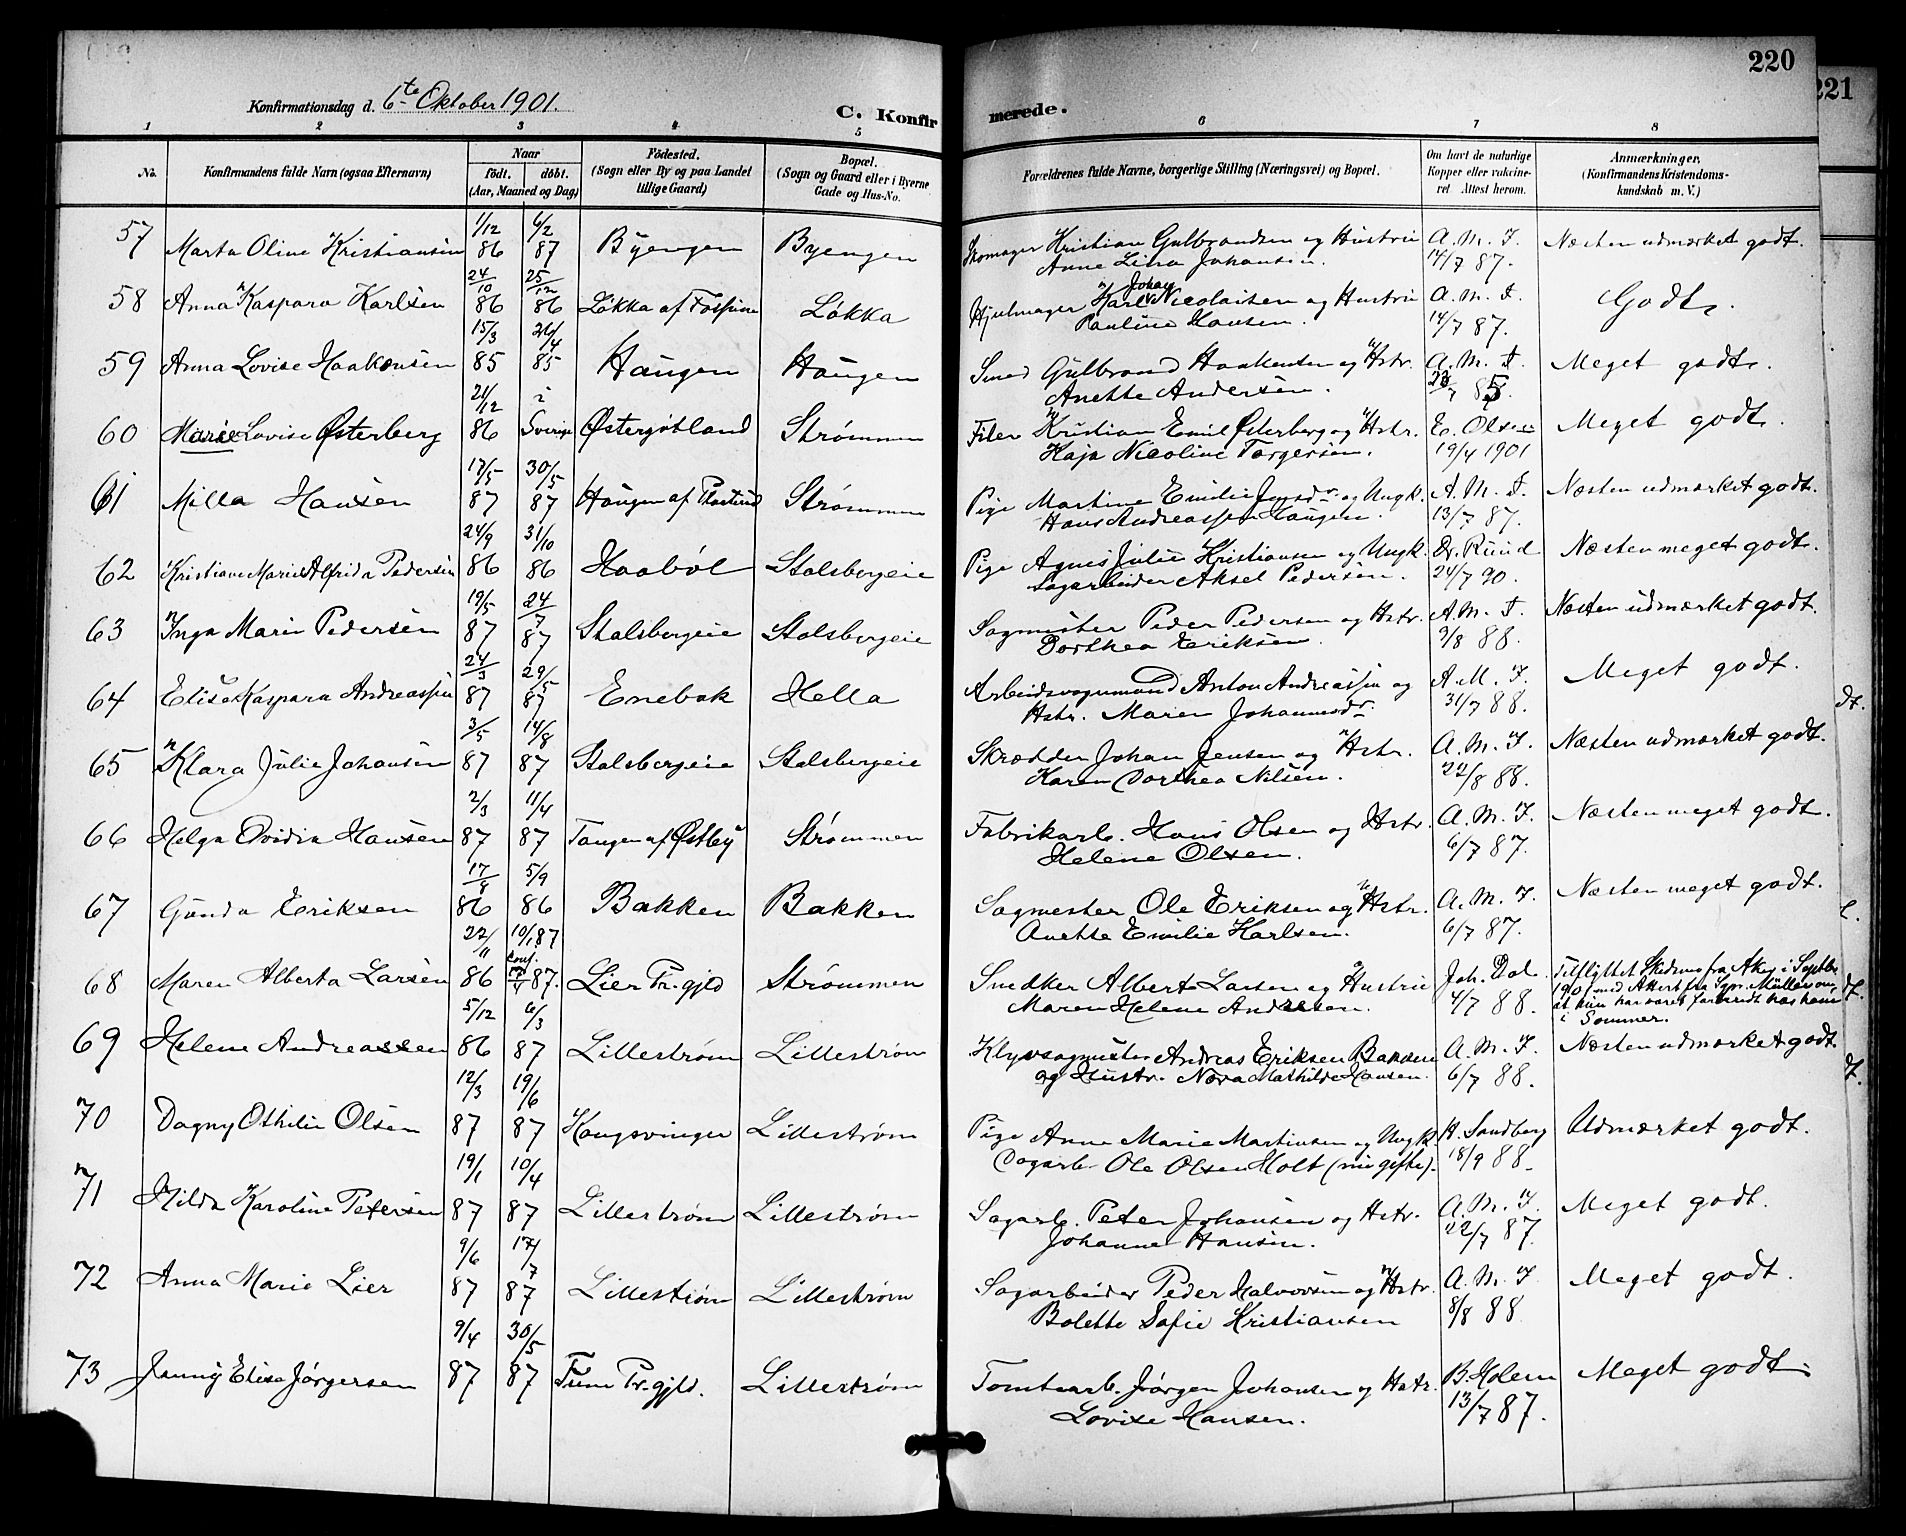 220
221
Konfirmationsdag d. 6te Oktober 1901.
C. Konfirmerede.
1 2 3 4 5 6 7 8
No. Konfirmandens fulde Navn (ogsaa Efternavn) Naar født. døbt. (Aar, Maaned og Dag) Fødested. (Sogn eller By og paa Landet tillige Gaard) Bopæl. (Sogn og Gaard eller i Byerne Gade og Hus-No. Forældrenes fulde Navne, borgerlige Stilling (Næringsvei) og Bopæl. Om havt de naturlige Kopper eller vakcineret. Attest herom. Anmærkninger. (Konfirmandens Kristendomskundskab m. V.)
57 Marta Oline Kristiansen 1/12 86 6/2 87 Byengen Byengen Skomager Kristian Gulbrandsen og Hustru A. M. F. Næsten udmærket godt.
Anne Lina Johansen. 14/7 87.
58 Anna Kaspara Karlsen 24/10 86 25/12 86 Løkka af Løkka Hjulmager Karl Johan Nicolaisen og Hustru A. M. F. Godt.
Pauline Hansen. 14/7 87.
59 Anna Lovise Haakensen 15/3 85 26/4 85 Haugen Haugen Smed Gulbrand Haakensen og Hstr. A. M. F. Meget godt.
Anette Andersen. 85.
60 Marie Lovise Østerberg 21/12 86 i Sverige Østergøtland Strømmen Filer Kristian Emil Østerberg og Hstr. E. Olsen Meget godt.
Kaja Nicoline Torgersen. 19/4 1901
61 Milla Hansen 17/5 87 30/5 87 Haugen af Strømmen Pige Martine Emilie og Ungk. A. M. F. Næsten udmærket godt.
Hans Andreassen Haugen. 13/7 87.
62 Kristiane Marie Alfrida Pedersen 24/9 86 31/10 86 Haabøl Stalsbergeie Pige Agnes Julie Kristiansen og Ungk. Dr. Ruud Næsten meget godt.
Sagarbeider Aksel Pedersen. 24/7 90.
63 Inga Marie Pedersen 19/5 87 24/7 87 Stalsbergeie Stalsbergeie Sagmester Peder Pedersen og Hstr. A. M. F. Næsten udmærket godt.
Dorthea Eriksen. 9/8 88.
64 Elise Kaspara Andreassen 24/3 87 29/5 87 Enebak Hella Arbeidsvognmand Anton Andreassen og A. M. F. Meget godt.
Hstr. Maren Johannesdr. 31/7 88.
65 Klara Julie Johansen 3/5 87 14/8 87 Stalsbergeie Stalsbergeie Skrædder Johan Jensen og Hstr. A. M. F. Næsten udmærket godt.
Karen Dorthea Nilsen. 22/8 88.
66 Helga Ovidia Hansen 2/3 87 11/4 87 Tangen af Østby Strømmen Fabrikarb. Hans Olsen og Hstr. A. M. F. Næsten meget godt.
Helene Olsen. 6/7 87.
67 Gunda Eriksen 17/8 86 5/9 86 Bakken Bakken Sagmester Ole Eriksen og Hstr. A. M. F. Næsten meget godt.
Anette Emilie Karlsen. 6/7 87.
68 Maren Alberta Larsen 22/11 86 10/1 87 conf. 87. Lier Pr.gjld Strømmen Snedker Albert Larsen og Hustru Joh. Dal. Tilflyttet Skedsmo fra Aker i Septbr.
Maren Helene Andersen. 4/7 88. 1901 med Attest fra Sgpr. Müller om,
at hun har været forberedt hos ham
i Sommer.
69 Helene Andreassen 5/12 86 6/3 87 Lillestrøm Lillestrøm Klyvsagmester Andreas Eriksen Bakken A. M. F. Næsten udmærket godt
og Hustr. Nora Mathilde Hansen. 6/7 88.
70 Dagny Othilie Olsen 12/3 87 19/6 87 Kongsvinger Lillestrøm Pige Anne Marie Martinsen og Ungk. H. Sandberg Udmærket godt.
Dagarb. Ole Olsen Holt (nu gifte). 18/9 88.
71 Hilda Karoline Petersen 19/1 87 10/4 87 Lillestrøm Lillestrøm Sagarb. Peter Johansen og Hstr. A. M. F. Meget godt.
Johanne Hansen. 22/7 87.
72 Anna Marie Lier 9/6 87 17/7 87 Lillestrøm Lillestrøm Sagarbeider Peder Halvorsen og Hstr. A. M. F. Meget godt.
Bolette Sofie Kristiansen 8/8 88
73 Jenny Elise Jørgensen 9/4 87 30/5 87 Tune Pr.gjld. Lillestrøm Tomtearb. Jørgen Johansen og Hstr. B. Holem Meget godt.
Lovise Hansen. 13/7 87.